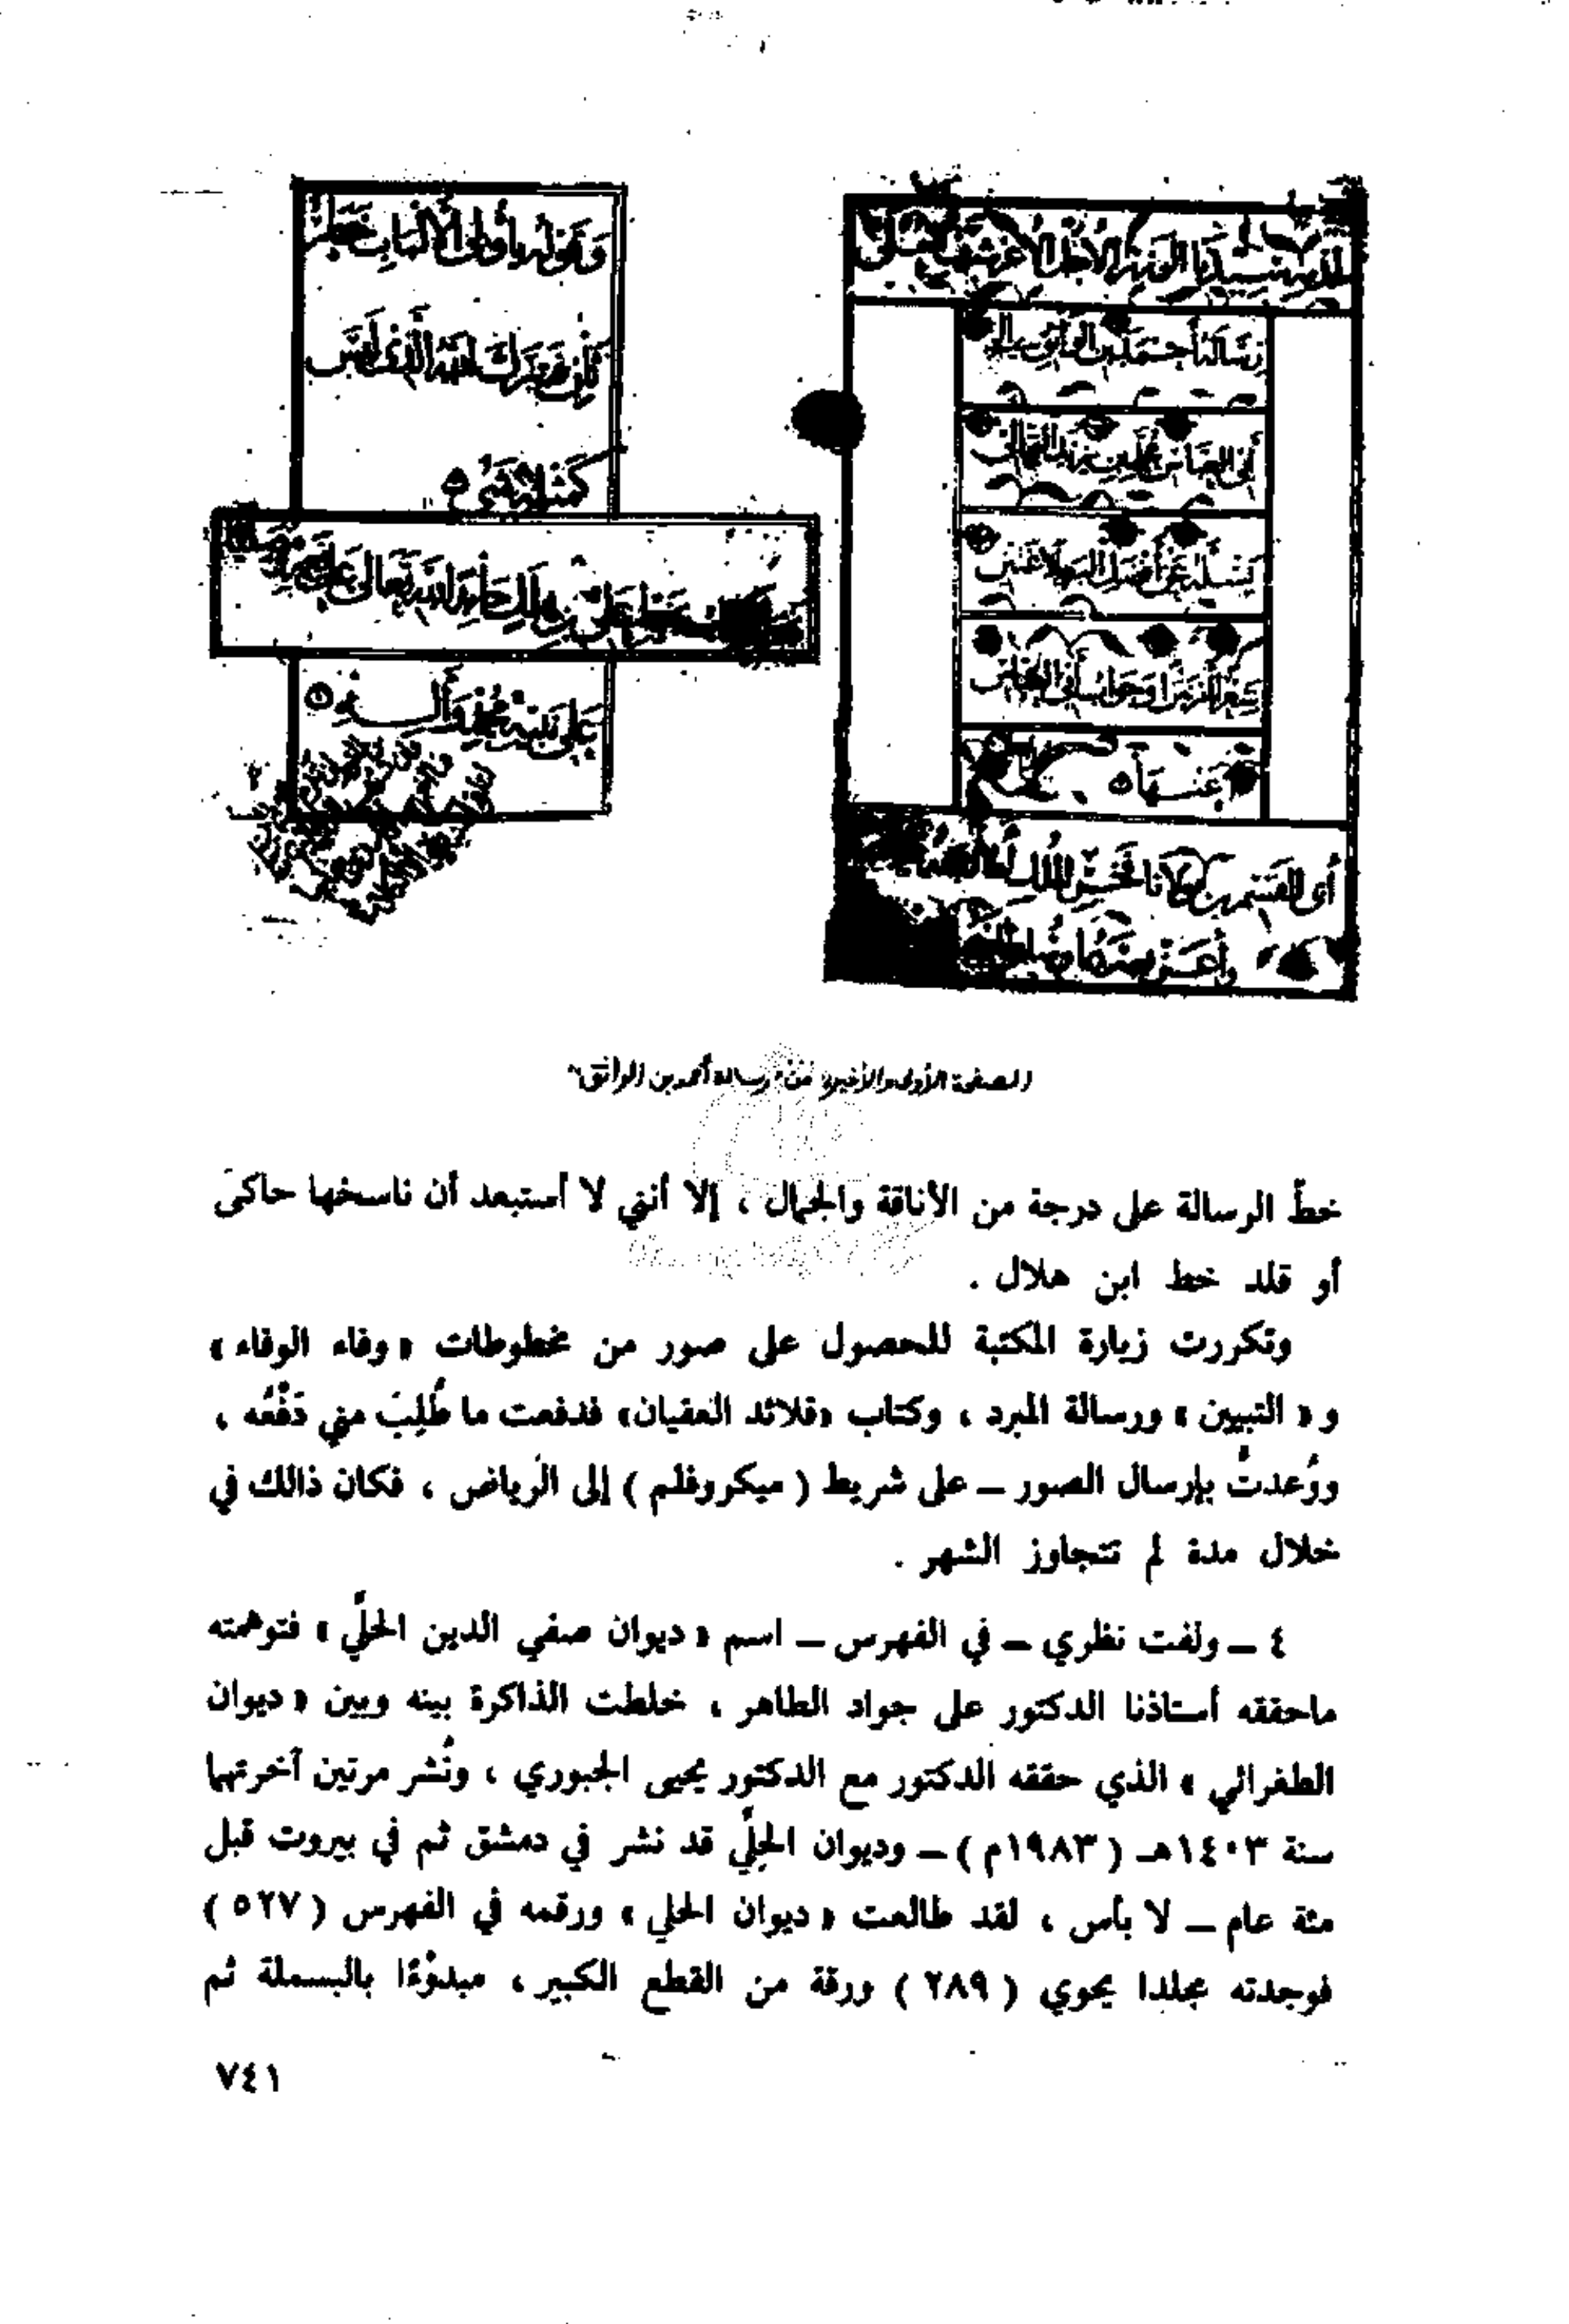 رسالة أحمد بن الواثق إلى
أبي العباس محمد بن يزيد الثمالي
يسئله عن أفضل البلاغتين
الشعر أم النثر وجواب أبي العباس
عنها
وتقول يا أولي الألباب
كمثله شيء
تعالى
على نبيه محمد وآله
الصفحة الأولى والأخيرة من "رسالة أحمد بن الواثق"
خطّ الرسالة على درجة من الأناقة والجمال ، إلا أنني لا أستبعد أن ناسخها حاكىَ
أو قلد خط ابن هلال .
وتكررت زيارة المكتبة للحصول على صور من مخطوطات « وفاء الوفاء »
و « التبيين » ورسالة المبرد ، وكتاب «قلائد العقيان» فدفعت ما طُلِبَ مني دَفْعُه ،
ووُعدتُ بإرسال الصور ــ على شريط ( ميكروفلم ) إلى الرياض ، فكان ذالك في
خلال مدة لم تتجاوز الشهر .
٤ ــ ولفت نظري ــ في الفهرس ــ اسم « ديوان صفي الدين الحلّي » فتوهمته
ماحققه أستاذنا الدكتور علي جواد الطاهر ، خلطت الذاكرة بينه وبين « ديوان
الطغرائي » الذي حققه الدكتور مع الدكتور يحيى الجبوري ، ونُشر مرتين آخرتهما
سنة ١٤٠٣هـ ( ١٩٨٣م ) ــ وديوان الحِلّي قد نشر في دمشق ثم في بيروت قبل
مئة عام ــ لا بأس ، لقد طالعت « ديوان الحلي » ورقمه في الفهرس ( ٥٢٧ )
فوجدته مجلدا يحوي ( ٢٨٩ ) ورقة من القطع الكبير ، مبدوْءًا بالبسملة ثم
٧٤١